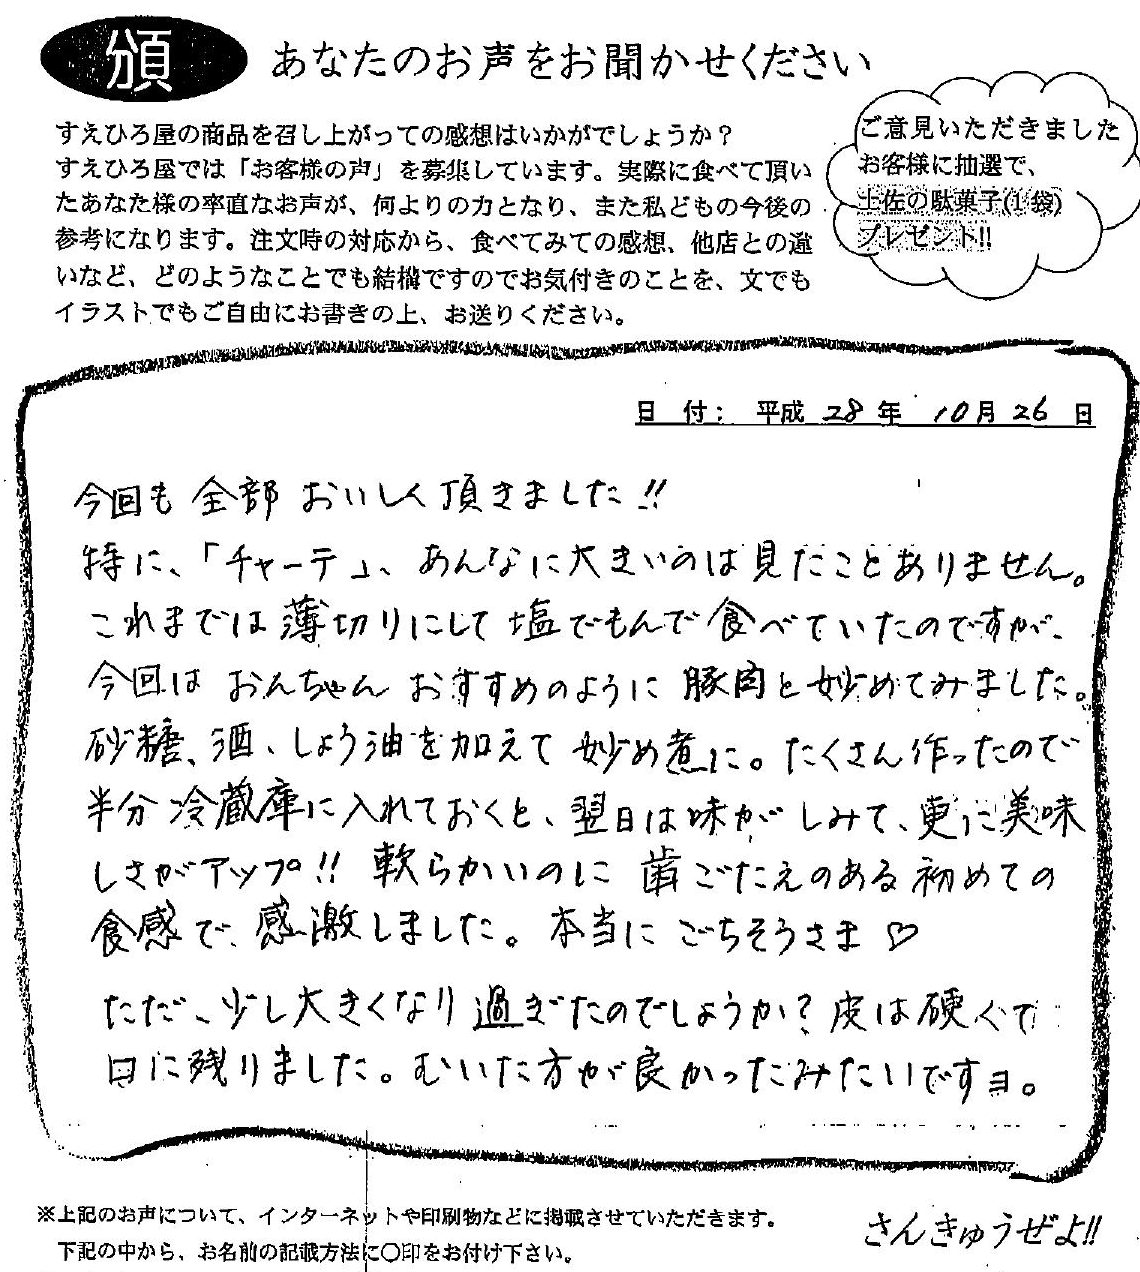 頒 あなたのお声をお聞かせください
すえひろ屋の商品を召し上がっての感想はいかがでしょうか？
すえひろ屋では「お客様の声」を募集しています。実際に食べて頂い
たあなた様の率直なお声が、何よりの力となり、また私どもの今後の
参考になります。注文時の対応から、食べてみての感想、他店との違
いなど、どのようなことでも結構ですのでお気付きのことを、文でも
イラストでもご自由にお書きの上、お送りください。
ご意見いただきました
お客様に抽選で、
土佐の駄菓子(1袋)
プレゼント!!
日 付： 平成 28 年 10月 26 日
今回も 全部 おいしく頂きました!!
特に、「チャーテ」、あんなに大きいのは見たことありません。
これまでは薄切りにして塩でもんで食べていたのですが、
今回は おんちゃん おすすめのように 豚肉と妙めてみました。
砂糖、酒、しょう油を加えて 妙め煮に。たくさん作ったので
半分冷蔵庫に入れておくと、翌日は味がしみて、更に美味
しさがアップ!! 軟らかいのに 歯ごたえのある初めての
食感で、感激しました。本当に ごちそうさま♡
ただ、少し大きくなり過ぎたのでしょうか？皮は硬くて
口に残りました。むいた方が良かったみたいですヨ。
※上記のお声について、インターネットや印刷物などに掲載させていただきます。
下記の中から、お名前の記載方法に〇印をお付け下さい。
さんきゅうぜよ!!